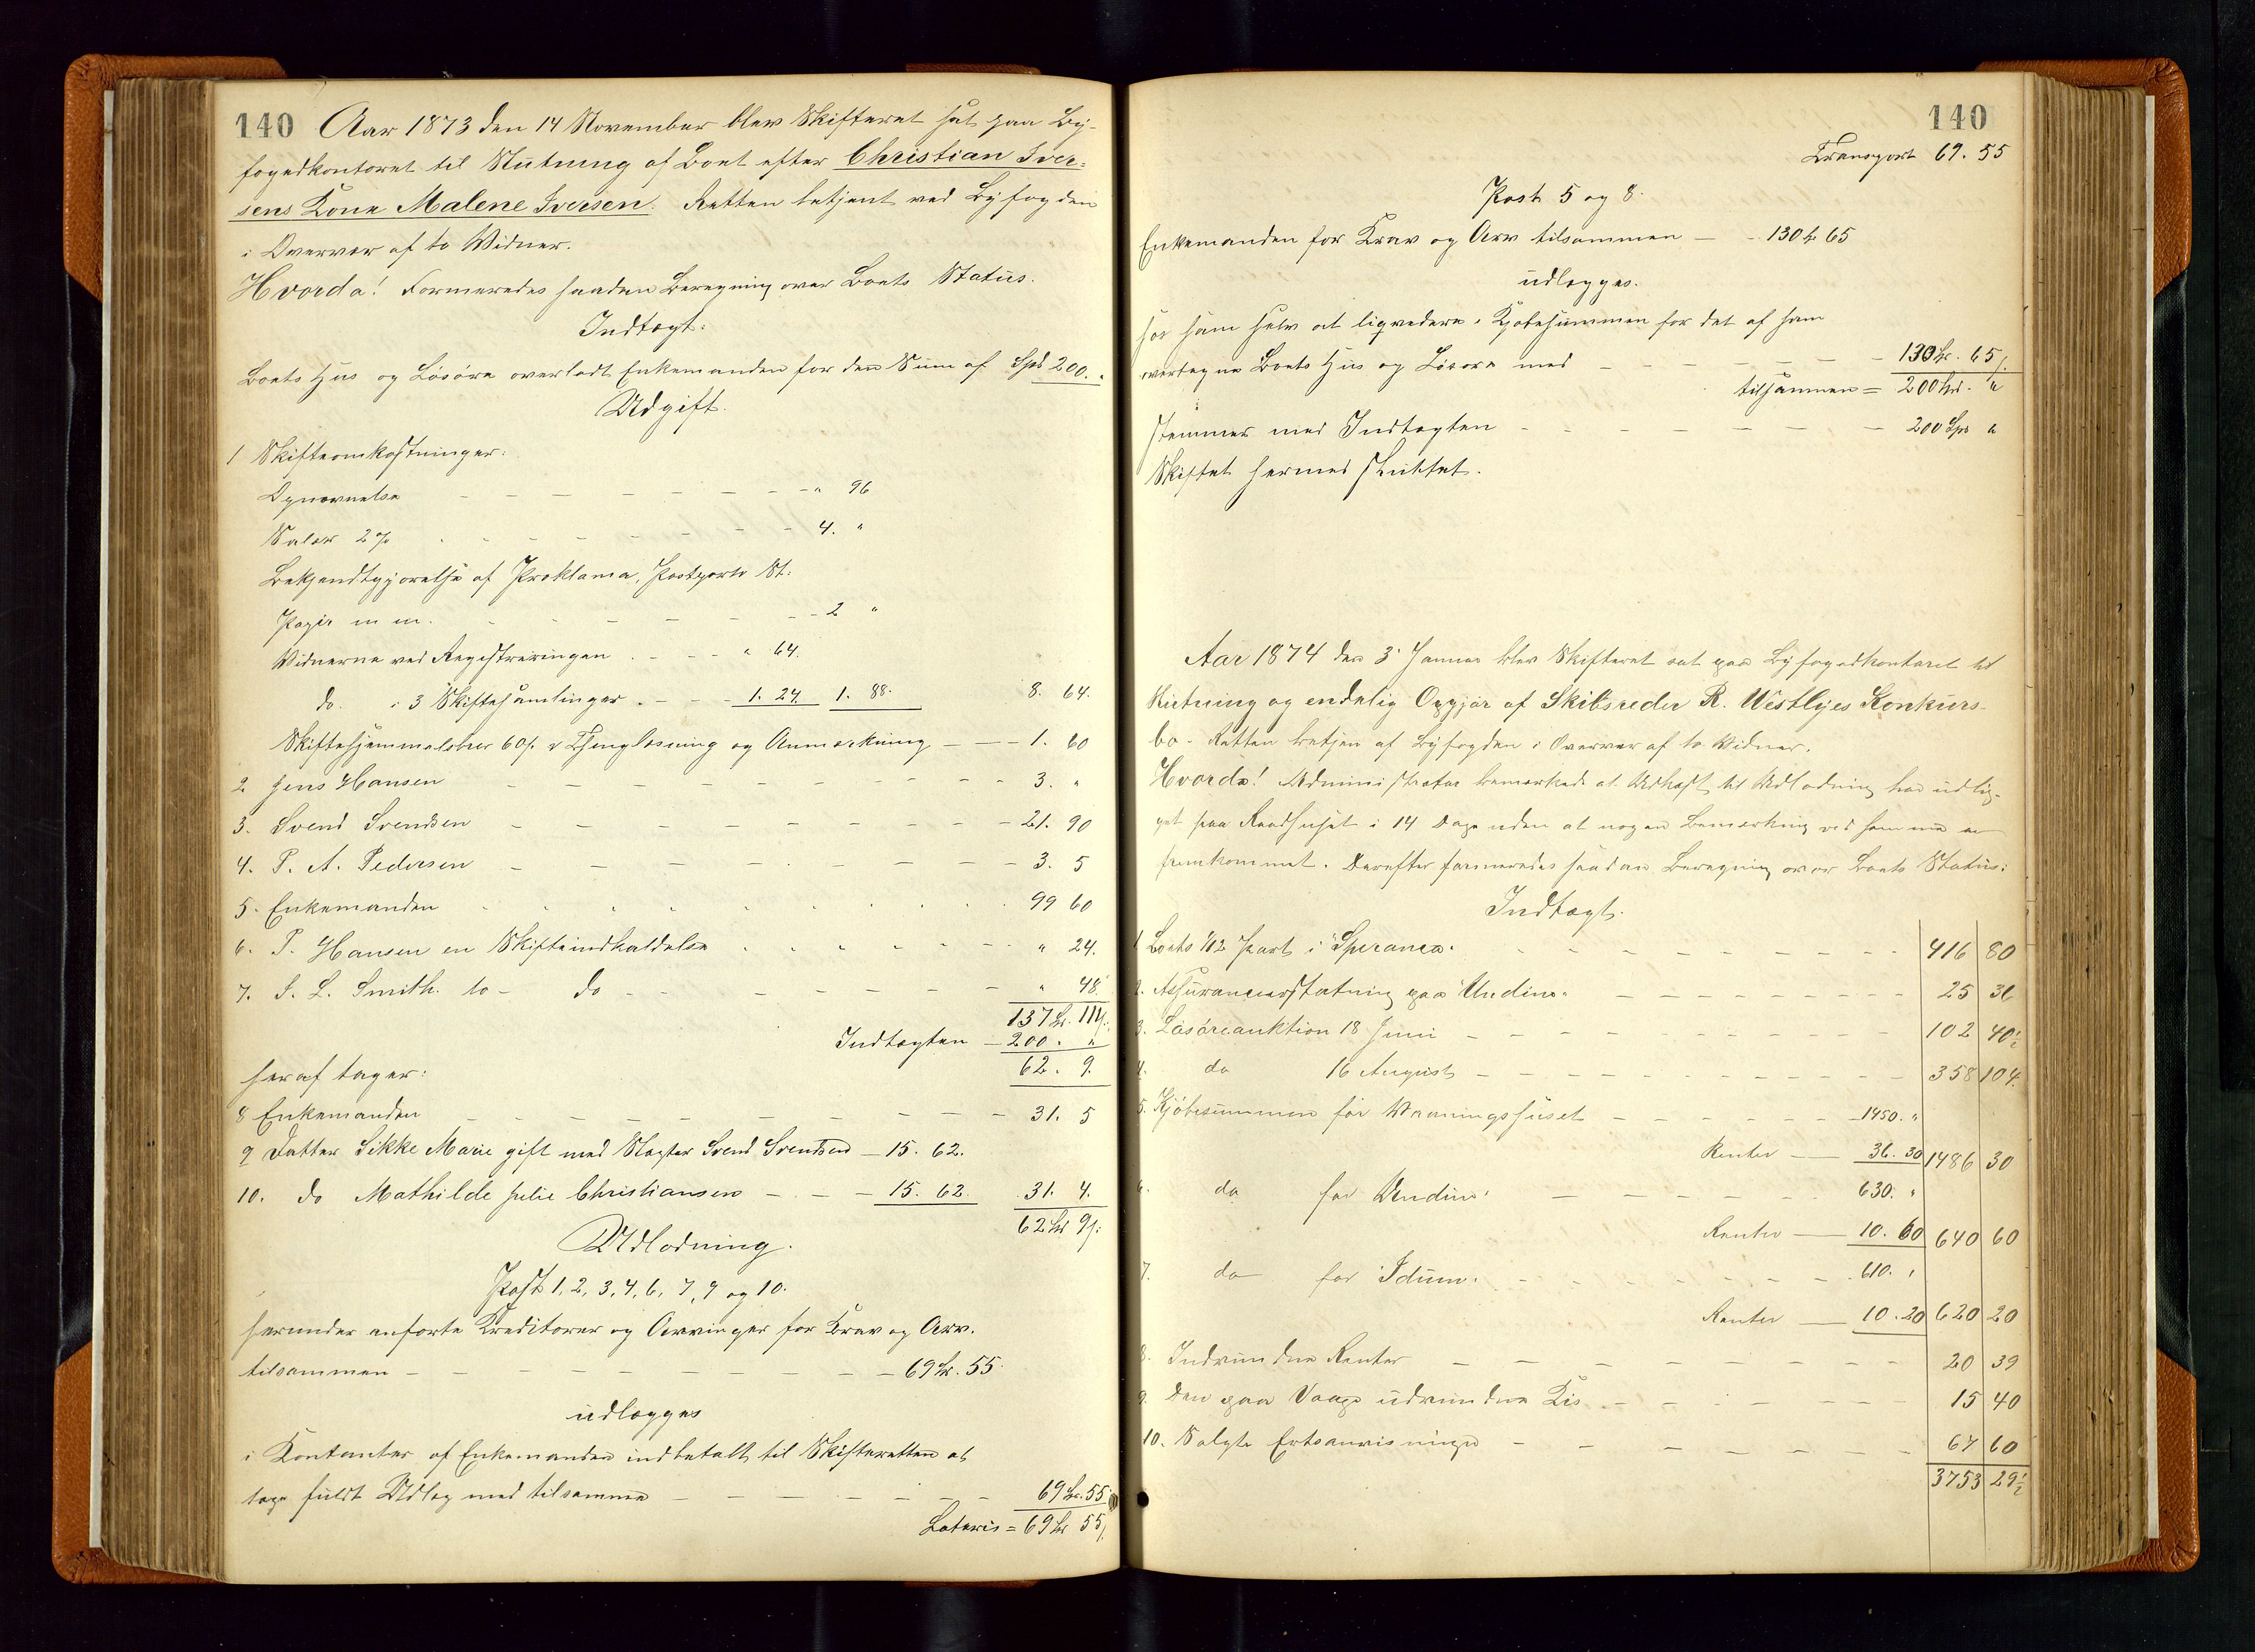 140 Aar 1873 den 14 November blev Skifteret sat paa By-
fogedkontoret til Slutning af Boet efter Christian Iver-
sens Kone Malene Iversen. Retten betjent ved Byfogden
i Overvær af to Vidner.
Hvorda! Formeredes saadan Beregning over Boets Status.
Indtægt:
Boets Hus og Løsøre overladt Enkemanden for den Sum af Spd 200. "
Udgift.
1 Skifteomkostninger:
Opnævnelse - - - - - - - - " 96
Salær 2 % - - - - - - - 4. "
Bekjendtgjørelse af Proklama, Postporto St:
Papir m m. - - - - - - 2 "
Vidnerne ved Registreringen . - - - " 64.
do. i 3 Skiftesamlinger . - - - 1. 24. 1. 88. 8. 64.
Skiftehjemmelsbrev 60 /. Thinglæsning og Anmærkning - - - 1. 60
2 Jens Hansen - - - - - - - - - - 3. "
3. Svend Svendsen - - - - - - - - - - 21. 90
4. P. A. Pedersen - - - - - - - - - 3. 5
5. Enkemanden - - - - - - - - - 99 60
6. P. Hansen en Skifteindkaldelse - - - - - - " 24.
7. S. L. Smith. to - do - - - - - - - - " 48.
137 Sp. 111 /.
Indtægten - 200. "
62. 9.
heraf tager:
8 Enkemanden - - - - - - - - - - 31. 5
9 Datter Sikke Marie gift med Slagter Svend Svendsen - 15. 62.
10. do Mathilde Julie Christiansen - - - 15. 62. 31. 4.
62 Sp 9 /.
Udlodning.
Post 1, 2, 3, 4, 6, 7, 9 og 10.
herunder anførte Kreditorer og Arvinger for Krav og Arv.
tilsammen - - - - - - - - - - 69 Sp. 55.
udlægges
i Kontanter af Enkemanden indbetalt til Skifteretten at
tage fuldt Udlæg med tilsammen - - - - - - - 69 Sp. 55
Lateris = 69 Sp 55 /.
140
Transport 69. 55
Post 5 og 8.
Enkemanden for Krav og Arv tilsammen - - 130 Sp 65
udlægges.
hos ham selv at liqvidere i Kjøbesummen for det af ham
overtagne Boets Hus og Løsøre med - - - - - - 130 Sp. 65 /.
tilsammen = 200 Spd. "
stemmer med Indtægten - - - - - - - - 200 Spd "
Skiftet hermed sluttet.
Aar 1874 den 3 Januar blev Skifteret sat paa Byfogedkontoret til
Slutning og endelig Opgjør af Skibsreder R. Westlyes Konkurs-
bo. Retten betjen af Byfogden i Overvær af to Vidner.
Hvorda! Administrator bemærkede at Udkast til Udlodning har udlig-
get paa Raadhuset i 14 Dage uden at nogen Bemærkning ved samme er
fremkommet. Derefter formeredes saadan Beregning over Boets Status:
Indtægt.
1 Boets 1/12 Part i "Speranza" - - - - - - - - 416 80
2. Assuranceerstatning paa "Undine" - - - - - - - 25 36
3. Løsøreauktion 18 Juni - - - - - - - - - 102 40½
4. do 16 August - - - - - - - - - 358 104.
5. Kjøbesummen for Vaaningshuset - - - - - - 1450. "
Renter — 36. 30 1486 30
6. do for "Undine" - - - - - - 630. "
Renter — 10. 60 640 60
7. do for "Idun" - - - - - - - 610. "
Renter — 10. 20 620 20
8. Indvundne Renter - - - - - - - - - 20 39
9. Den paa Vaage udvundne Kis - - - - - - - 15 40
10. Solgte Ertsanvisninger - - - - - - - 67 60
3753 29½